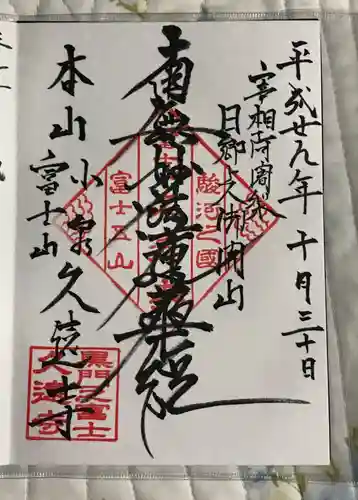 平成廿九年 十月三十日
宰相寺
日郷 開山
南無妙法蓮華経
本山 小泉 久遠寺
富士山
駿河之國
富士五山
黒門之富士
久遠寺